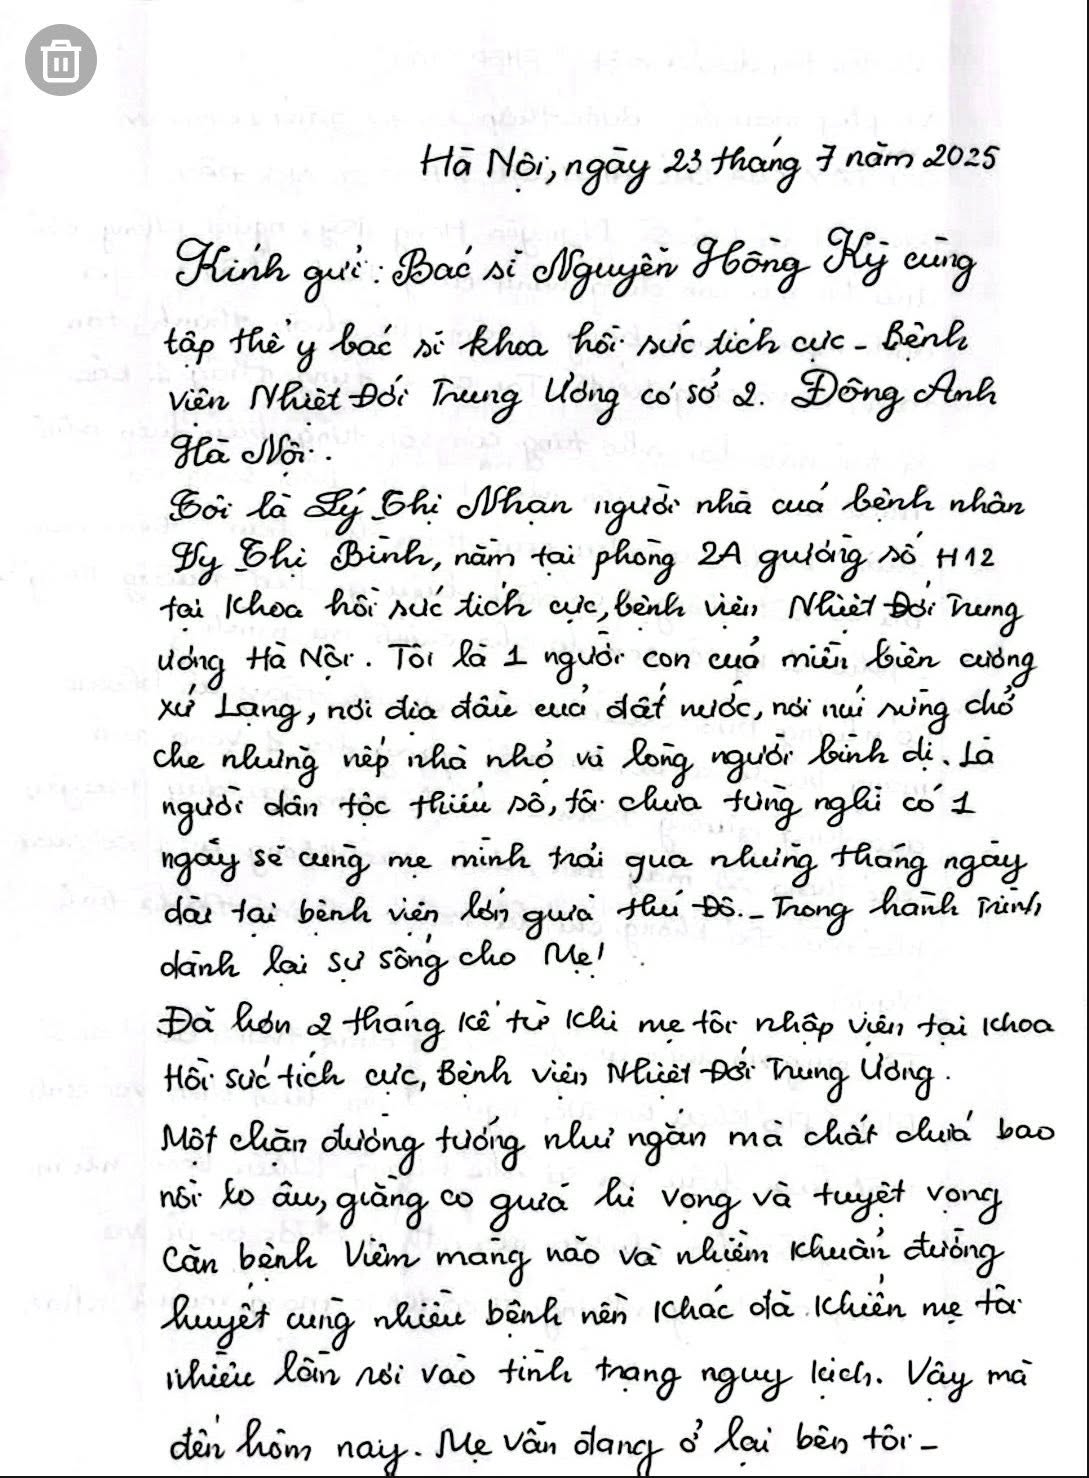 Hà Nội, ngày 23 tháng 7 năm 2025
Kính gửi: Bác sĩ Nguyễn Hồng Kỳ cùng
tập thể y bác sĩ khoa hồi sức tích cực - Bệnh
viện Nhiệt Đới Trung Ương cơ sở 2. Đông Anh
Hà Nội.
Tôi là Lý Thị Nhạn người nhà của bệnh nhân
Vy Thị Bình, nằm tại phòng 2A giường số H12
tại khoa hồi sức tích cực, bệnh viện Nhiệt Đới Trung
ương Hà Nội. Tôi là 1 người con của miền biên cương
xứ Lạng, nơi địa đầu của đất nước, nơi núi rừng chở
che những nếp nhà nhỏ và lòng người bình dị. Là
người dân tộc thiểu số, tôi chưa từng nghĩ có 1
ngày sẽ cùng mẹ mình trải qua những tháng ngày
dài tại bệnh viện lớn giữa thủ Đô. - Trong hành trình
dành lại sự sống cho Mẹ!
Đã hơn 2 tháng kể từ khi mẹ tôi nhập viện tại khoa
Hồi sức tích cực, Bệnh viện Nhiệt Đới Trung Ương.
Một chặn đường tưởng như ngắn mà chất chứa bao
nỗi lo âu, giằng co giữa hi vọng và tuyệt vọng
Căn bệnh Viêm màng não và nhiễm khuẩn đường
huyết cùng nhiều bệnh nền khác đã khiến mẹ tôi
nhiều lần rơi vào tình trạng nguy kịch. Vậy mà
đến hôm nay. Mẹ vẫn đang ở lại bên tôi -